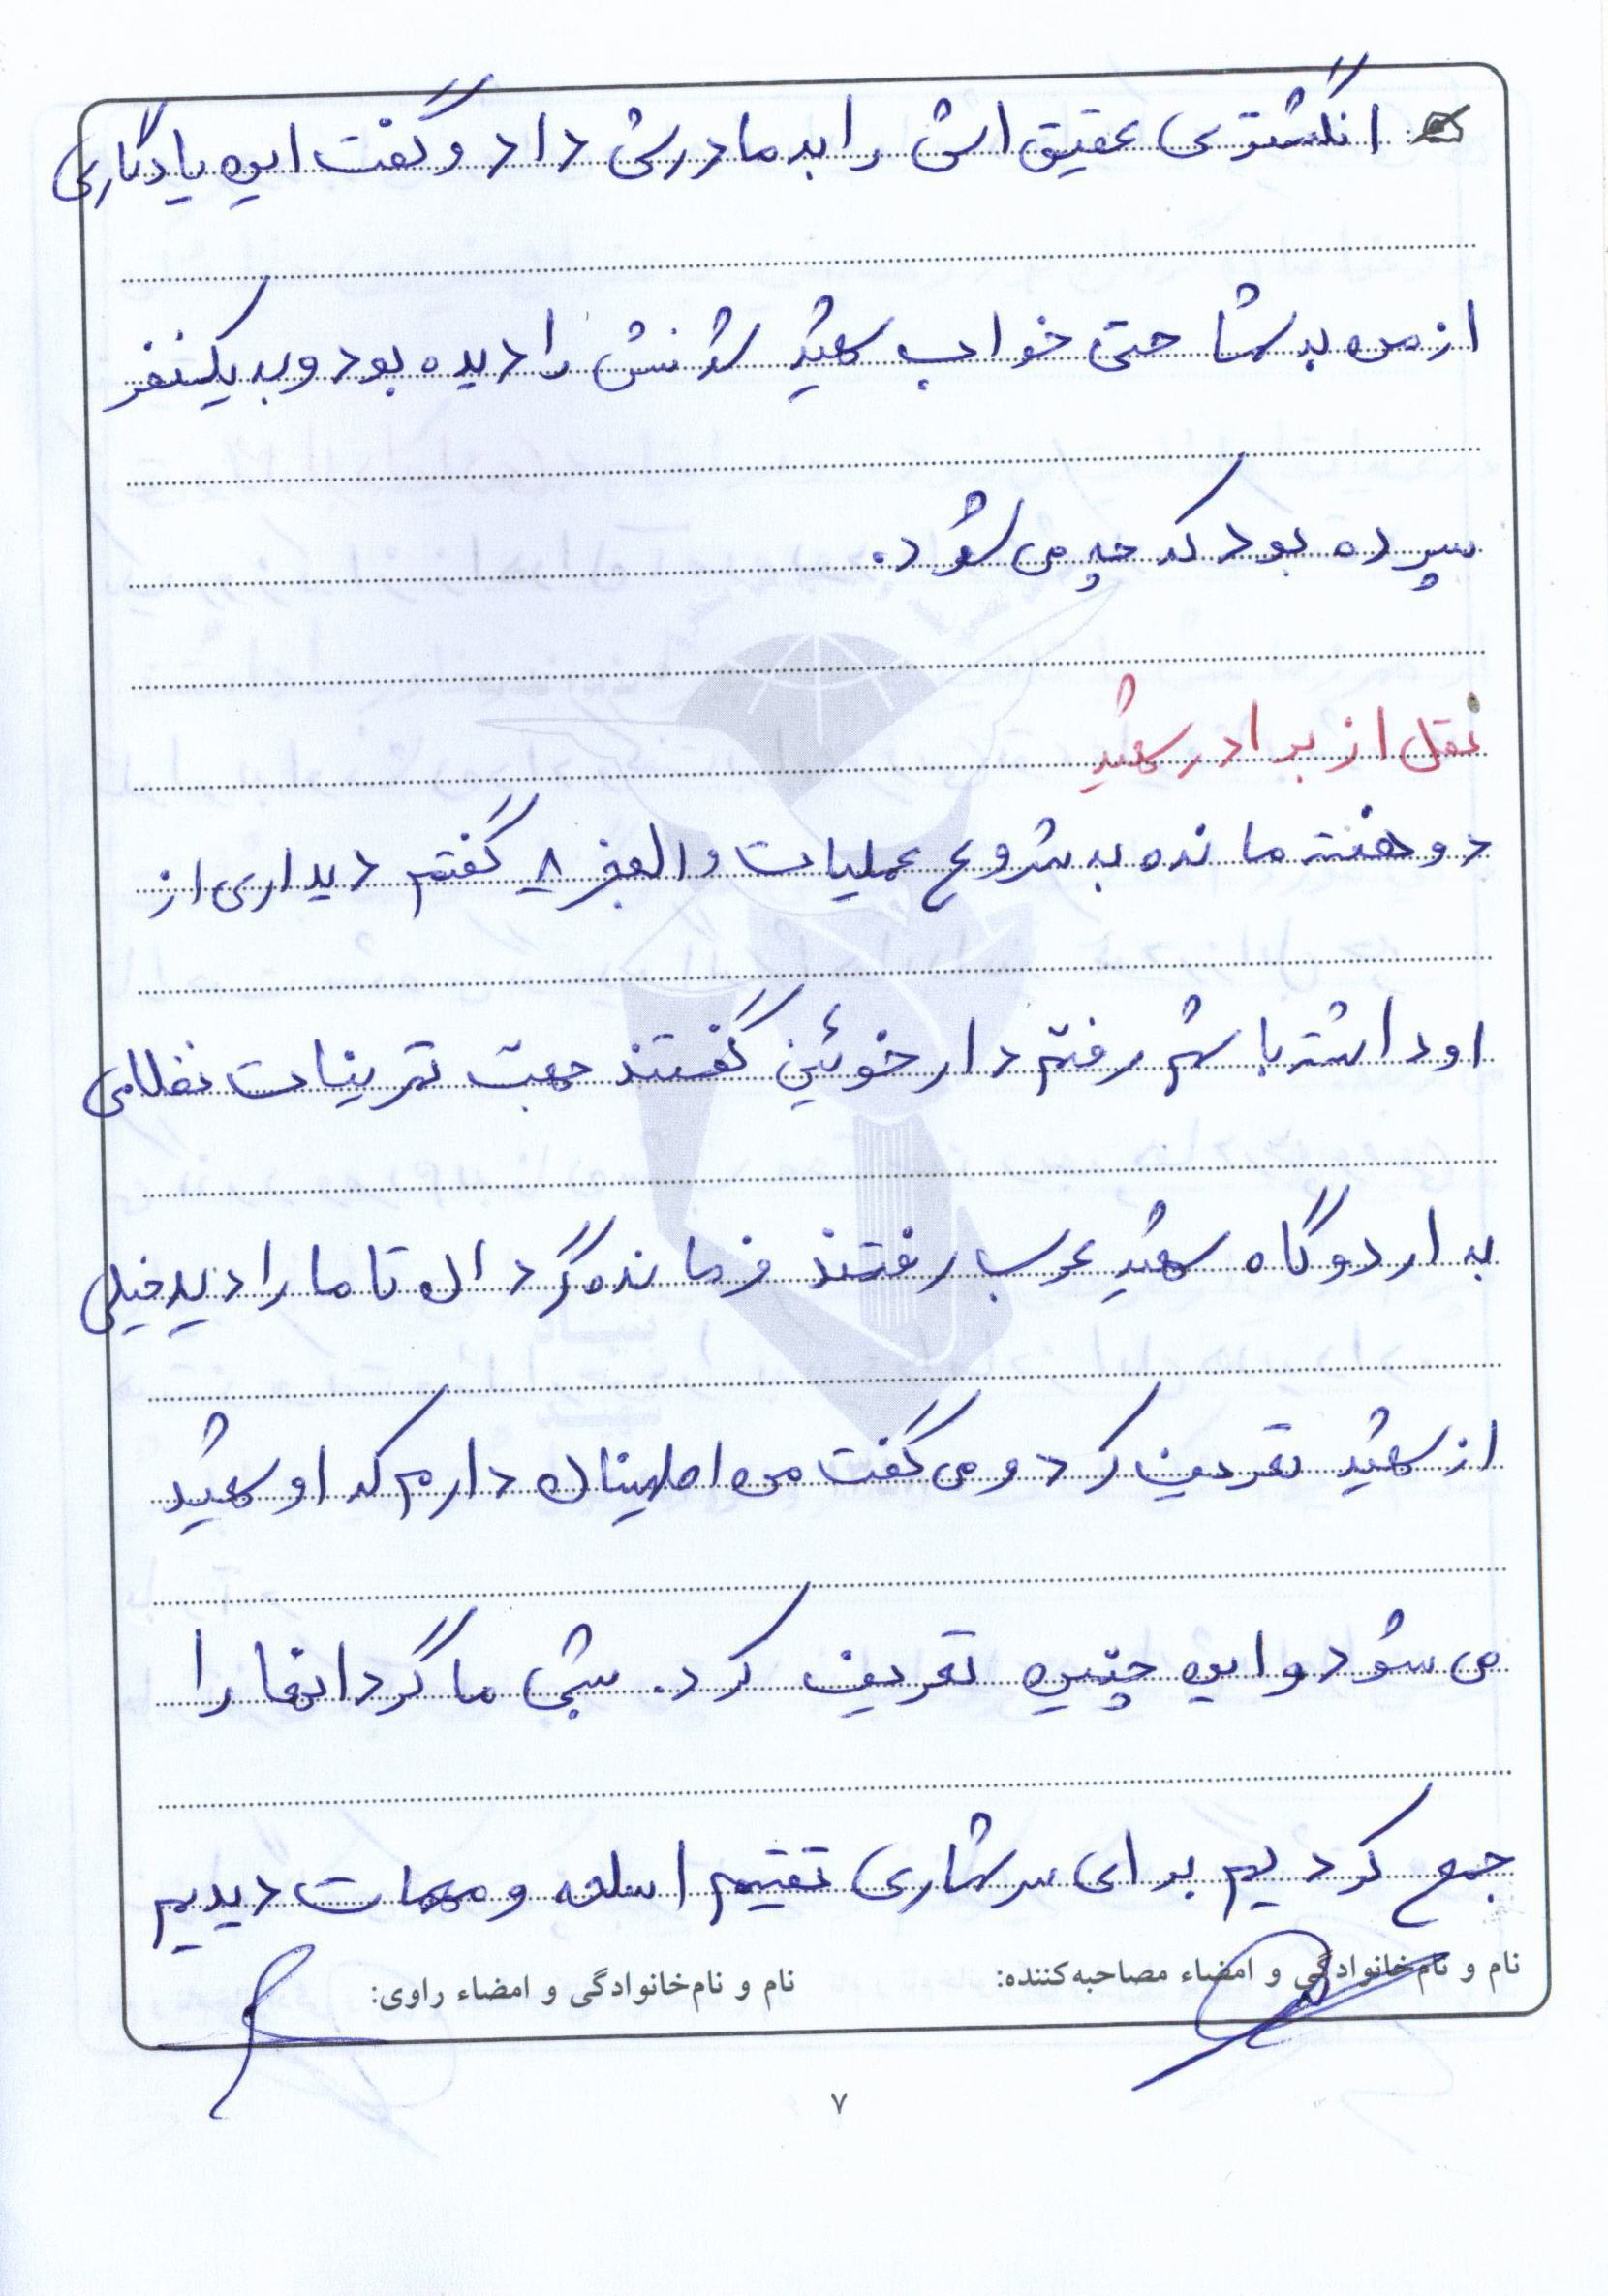 انگشتری عقیق اش را به مادرش داد و گفت این یادگاری
از من به شما حتی خواب شهید شدنش را دیده بود و به یکنفر
سپرده بود که چه می شود.
نقل از برادر شهید
دو هفته مانده به شروع عملیات والفجر ۸ گفتم دیداری از
او داشته باشم رفتم دارخوئین گفتند جهت تمرینات نظامی
به اردوگاه شهید عرب رفتند فرمانده گردان تا ما را دید خیلی
از شهید تعریف کرد و می گفت من اطمینان دارم که او شهید
می شود و این چنین تعریف کرد. شبی ما گردانها را
جمع کردیم برای سرشماری تقسیم اسلحه و مهمات دیدیم
نام و نام‌خانوادگی و امضاء مصاحبه‌کننده: نام و نام‌خانوادگی و امضاء راوی:
۷